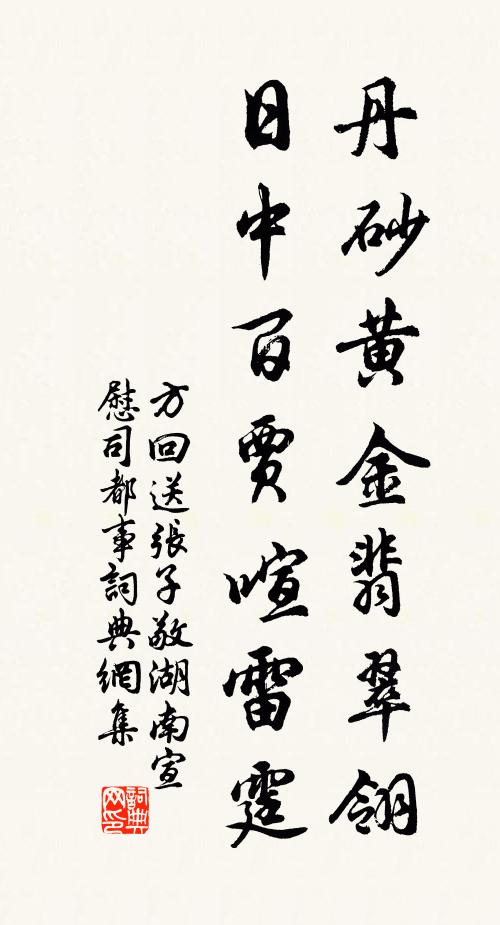 丹砂黄金翡翠翎
日中百賈喧雷霆
方回送張子敬湖南宣
慰司都事詞典網集
詞典
网印